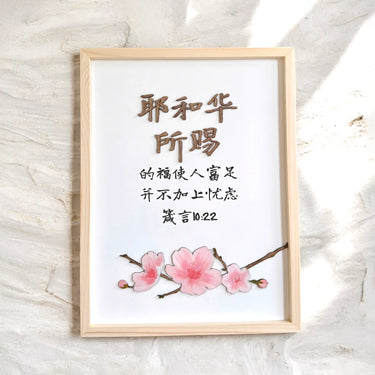 耶和华
所赐
的福使人富足
并不加上忧虑
箴言10:22